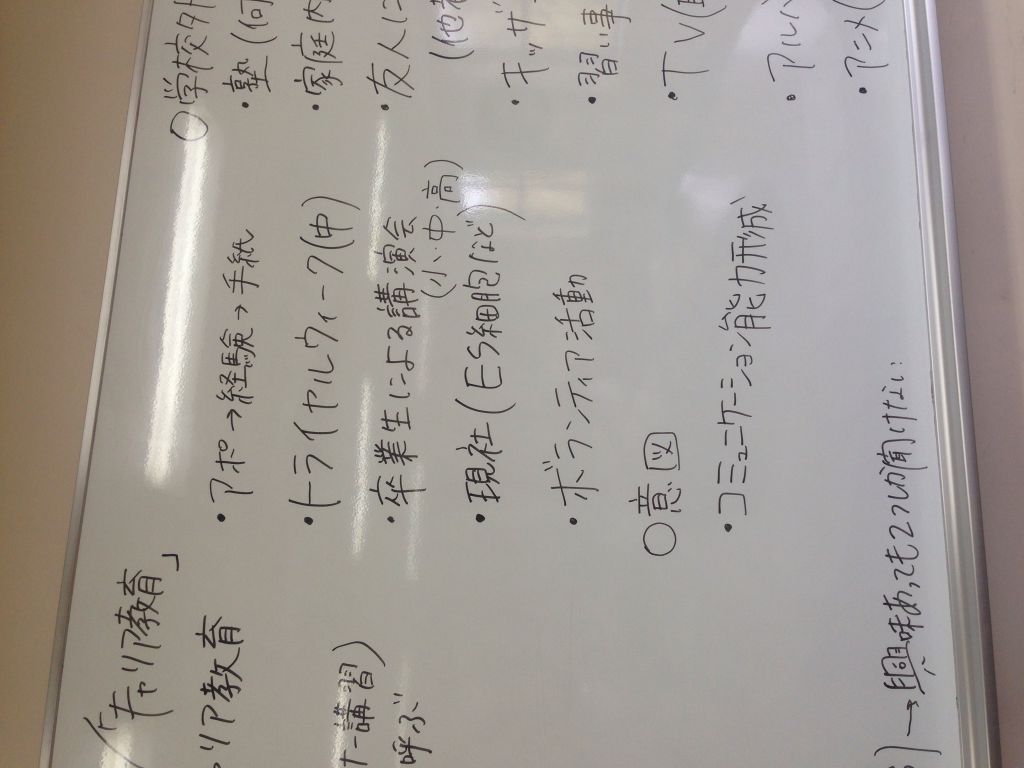 「キャリア教育」
リア教育
ナー講習)
呼ぶ
・アポ→経験→手紙
・トライヤルウィーク(中)
・卒業生による講演会
(小・中・高)
・現社(ES細胞など)
・ボランティア活動
○意図
・コミュニケーション能力形成
→興味あっても2つしか聞けない
○学校外
・塾(何
・家庭内
・友人に
(他
・キッザ
・習い事
・TV(
・アルバ
・アニメ(